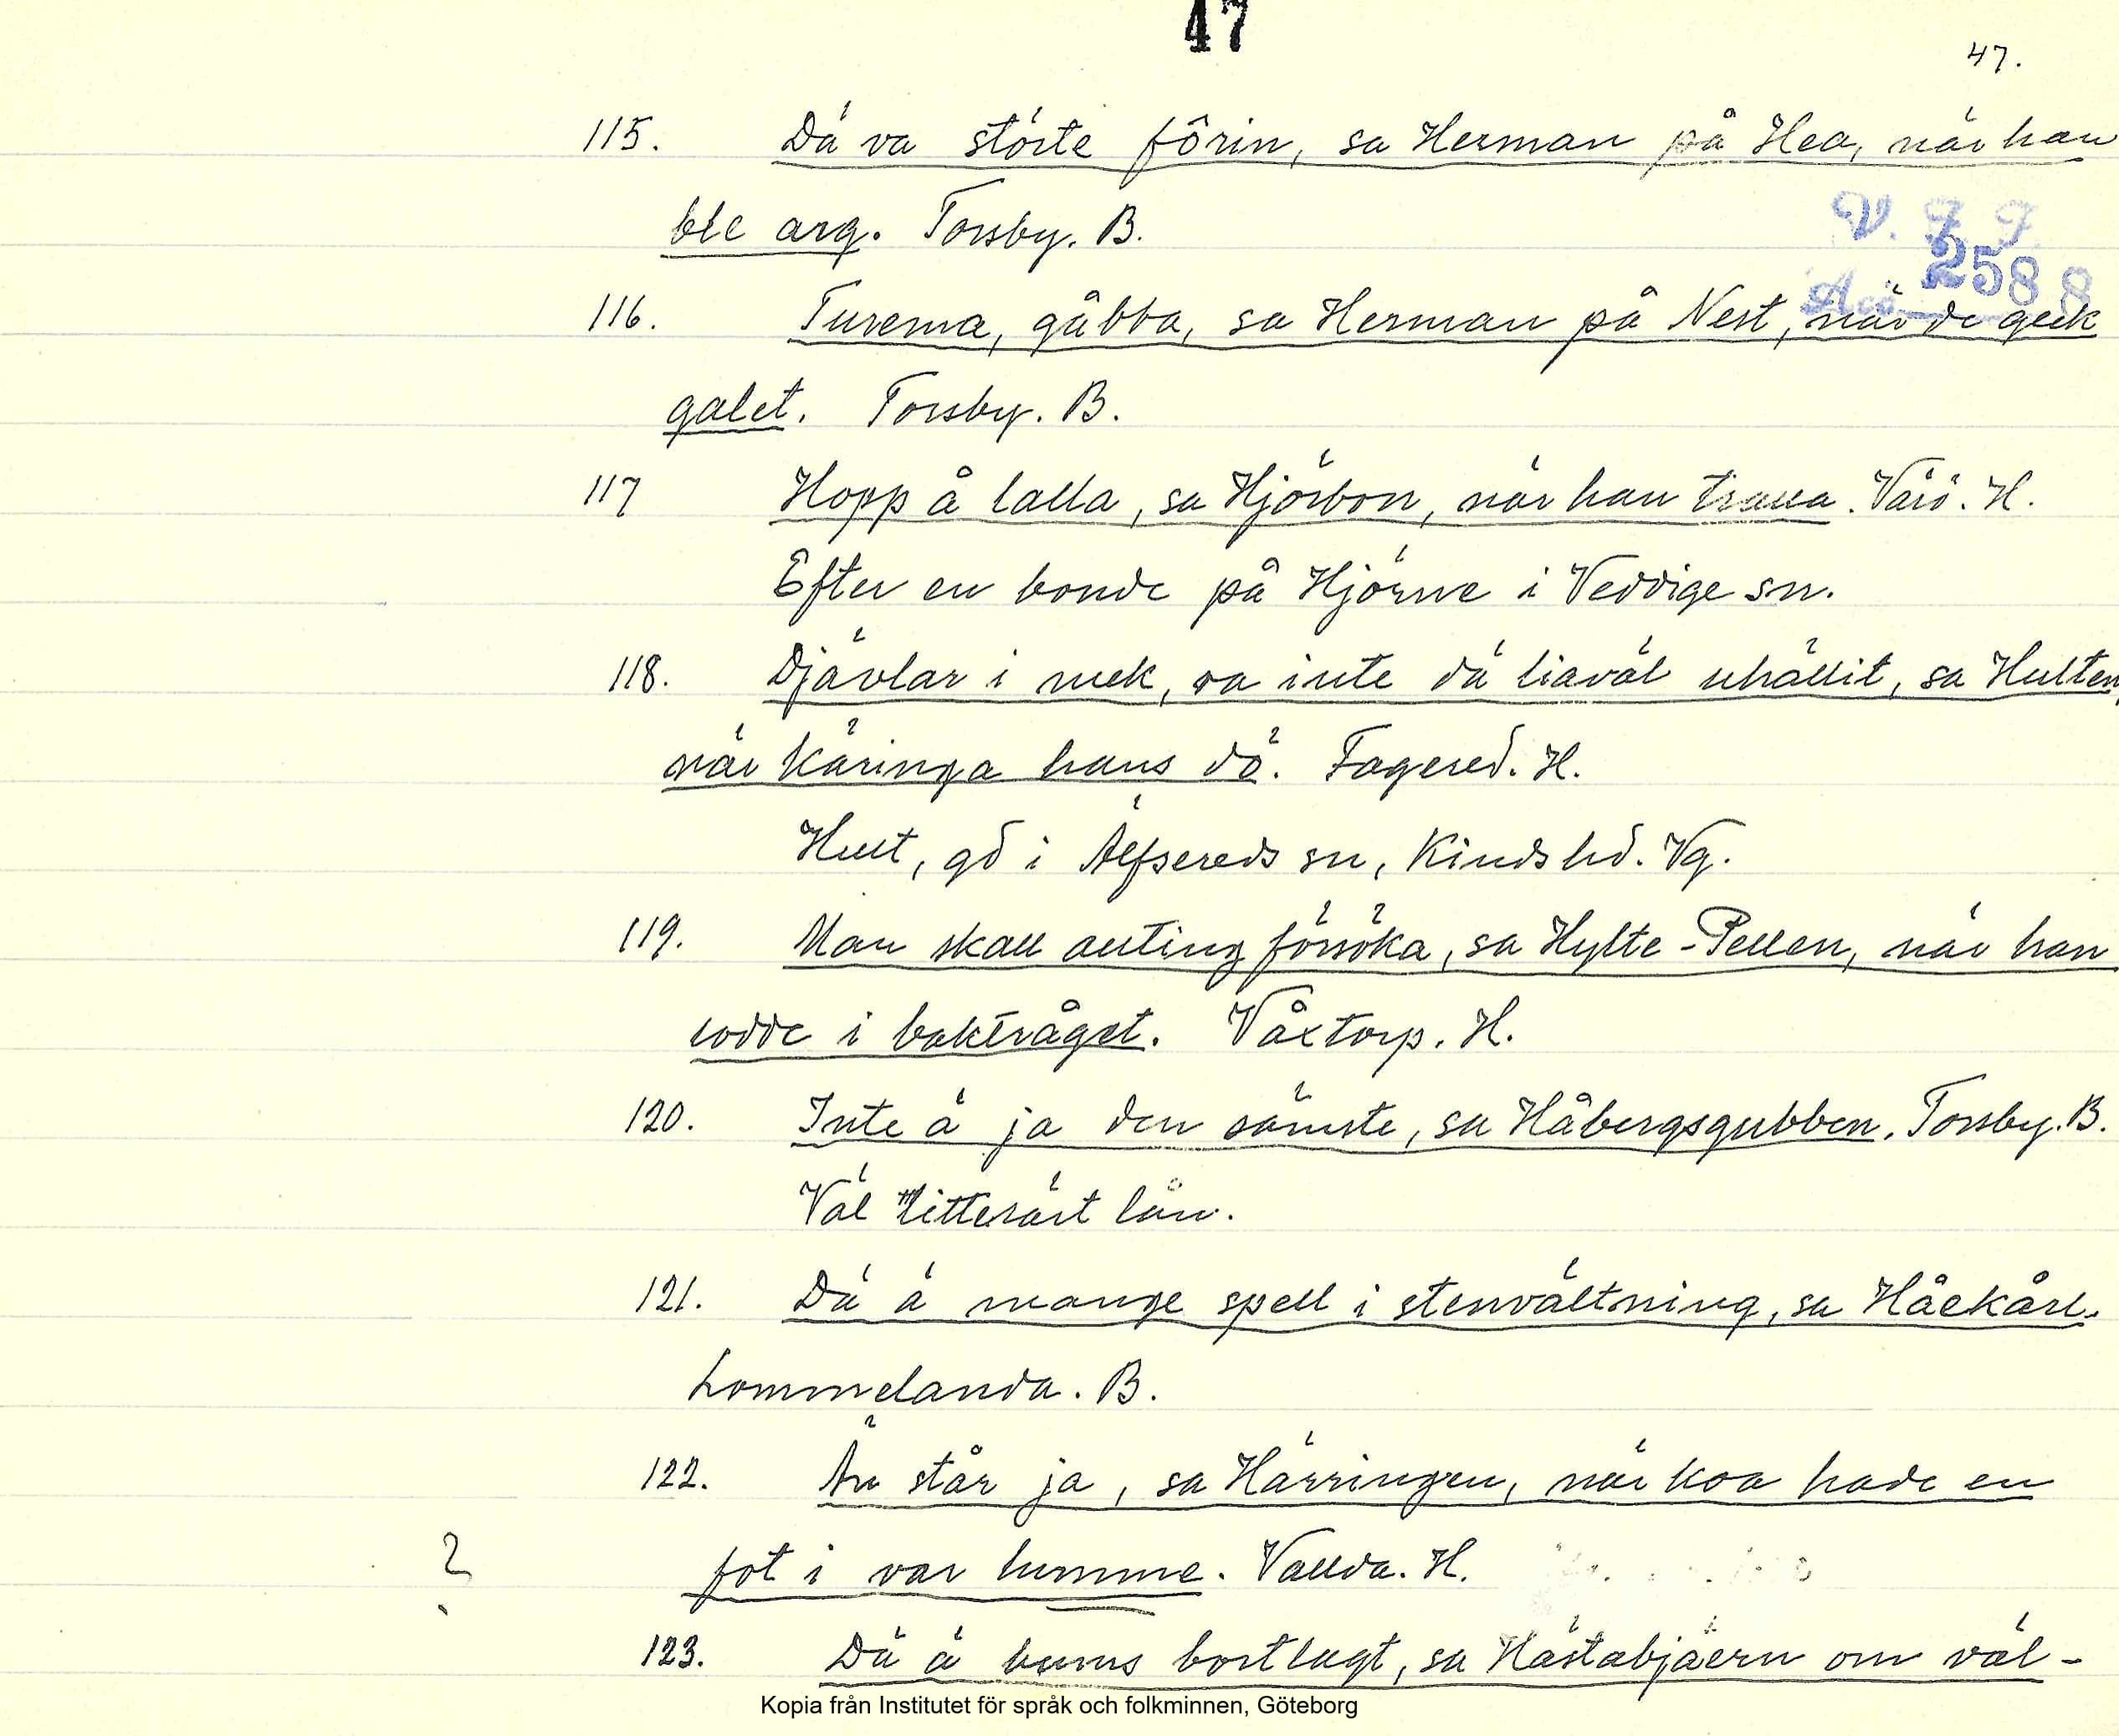 47
47.
115. Dä va störte fôrin, sa Herman på Hea, när han
ble arg. Torsby. B.
V. F. F.
2588
Acc
116. Turema, gåbba, sa Herman på Nest, när de geek
galet. Torsby. B.
117 Hopp å lalla, sa Hjörbon, när han trilla. Värö. H.
Efter en bonde på Hjörne i Veddige sn.
118. Djävlar i mek, va inte dä liaväl uhällit, sa Hulten,
när käringa hans dö. Fagered. H.
Hult, gd i Älfsereds sn, Kinds hd. Vg.
119. Man skall allting försöka, sa Hylte-Pellen, när han
rodde i baktråget. Våxtorp. H.
120. Inte ä ja den sämste, sa Håbergsgubben. Torsby. B.
Väl litterärt lån.
121. Dä ä mange spell i stenvältning, sa Håekårl.
Rommelanda. B.
122. Än står ja, sa Härringen, när koa hade en
fot i var humme. Vallda. H.
?
123. Dä ä bums bortlagt, sa Hästabjäern om väl-
Kopia från Institutet för språk och folkminnen, Göteborg